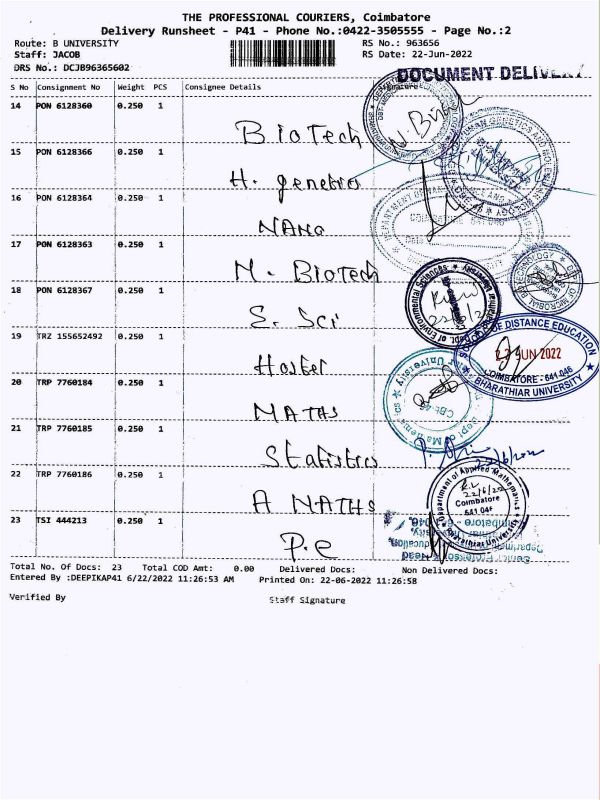 THE PROFESSIONAL COURIERS, Coimbatore
Delivery Runsheet - P41 - Phone No.:0422-3505555 - Page No.:2
Route: B UNIVERSITY RS No.: 963656
Staff: JACOB RS Date: 22-Jun-2022
DRS No.: DCJB96365602
DOCUMENT DELIVERY
S No Consignment No Weight PCS Consignee Details Signature
14 PON 6128360 0.250 1
BioTech
15 PON 6128366 0.250 1
H. genetics
16 PON 6128364 0.250 1
NANO
17 PON 6128363 0.250 1
M. BioTech
18 PON 6128367 0.250 1
E. Sci
19 TRZ 155652492 0.250 1
Hostel
20 TRP 7760184 0.250 1
MATHS
21 TRP 7760185 0.250 1
Statistics
22 TRP 7760186 0.250 1
A MATHS
23 TSI 444213 0.250 1
P.e
Dept. of Environmental Sciences
SCHOOL OF DISTANCE EDUCATION
22 JUN 2022
COIMBATORE - 641 046
BHARATHIAR UNIVERSITY
22/6/2022
Department of Applied Mathematics
22/6/22
Coimbatore
Bharathiar University
Total No. Of Docs: 23 Total COD Amt: 0.00 Delivered Docs: Non Delivered Docs:
Entered By :DEEPIKAP41 6/22/2022 11:26:53 AM Printed On: 22-06-2022 11:26:58
Verified By Staff Signature